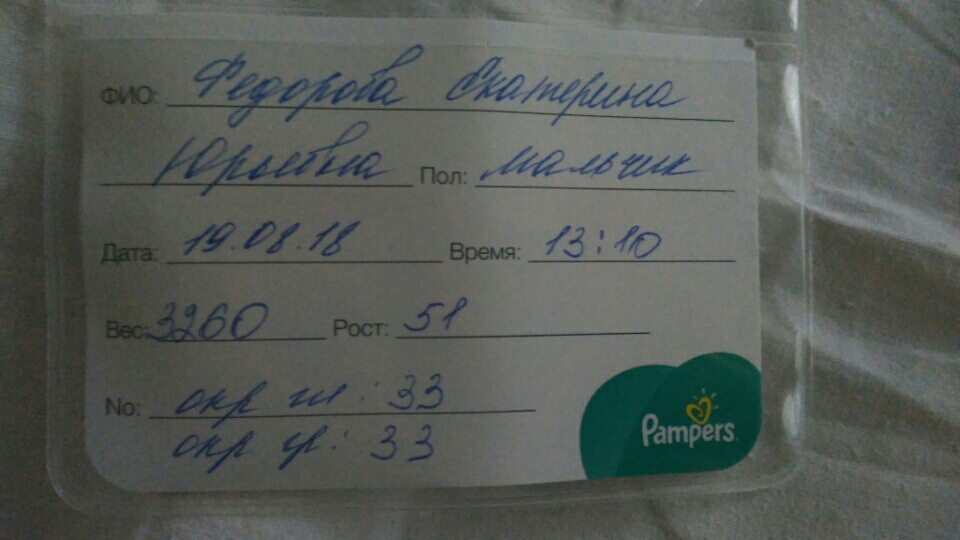 ФИО: Федорова Екатерина
Юрьевна Пол: мальчик
Дата: 19.08.18 Время: 13:10
Вес: 3260 Рост: 51
No: окр гл: 33
окр гр: 33
Pampers